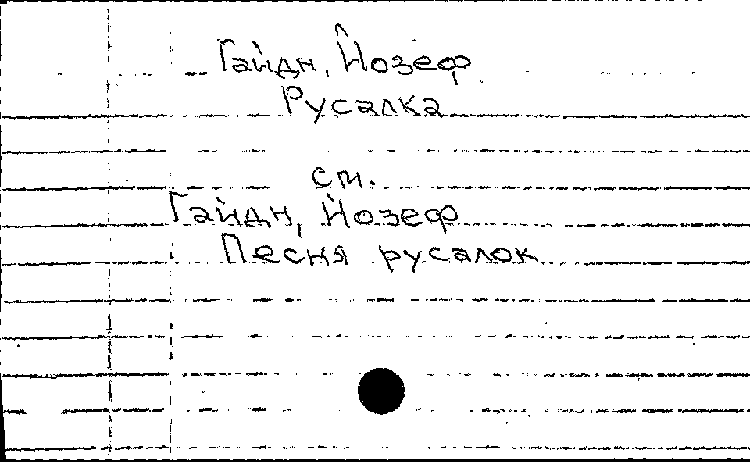 Гайдн, Йозеф
Русалка
см.
Гайдн, Йозеф
Песня русалок